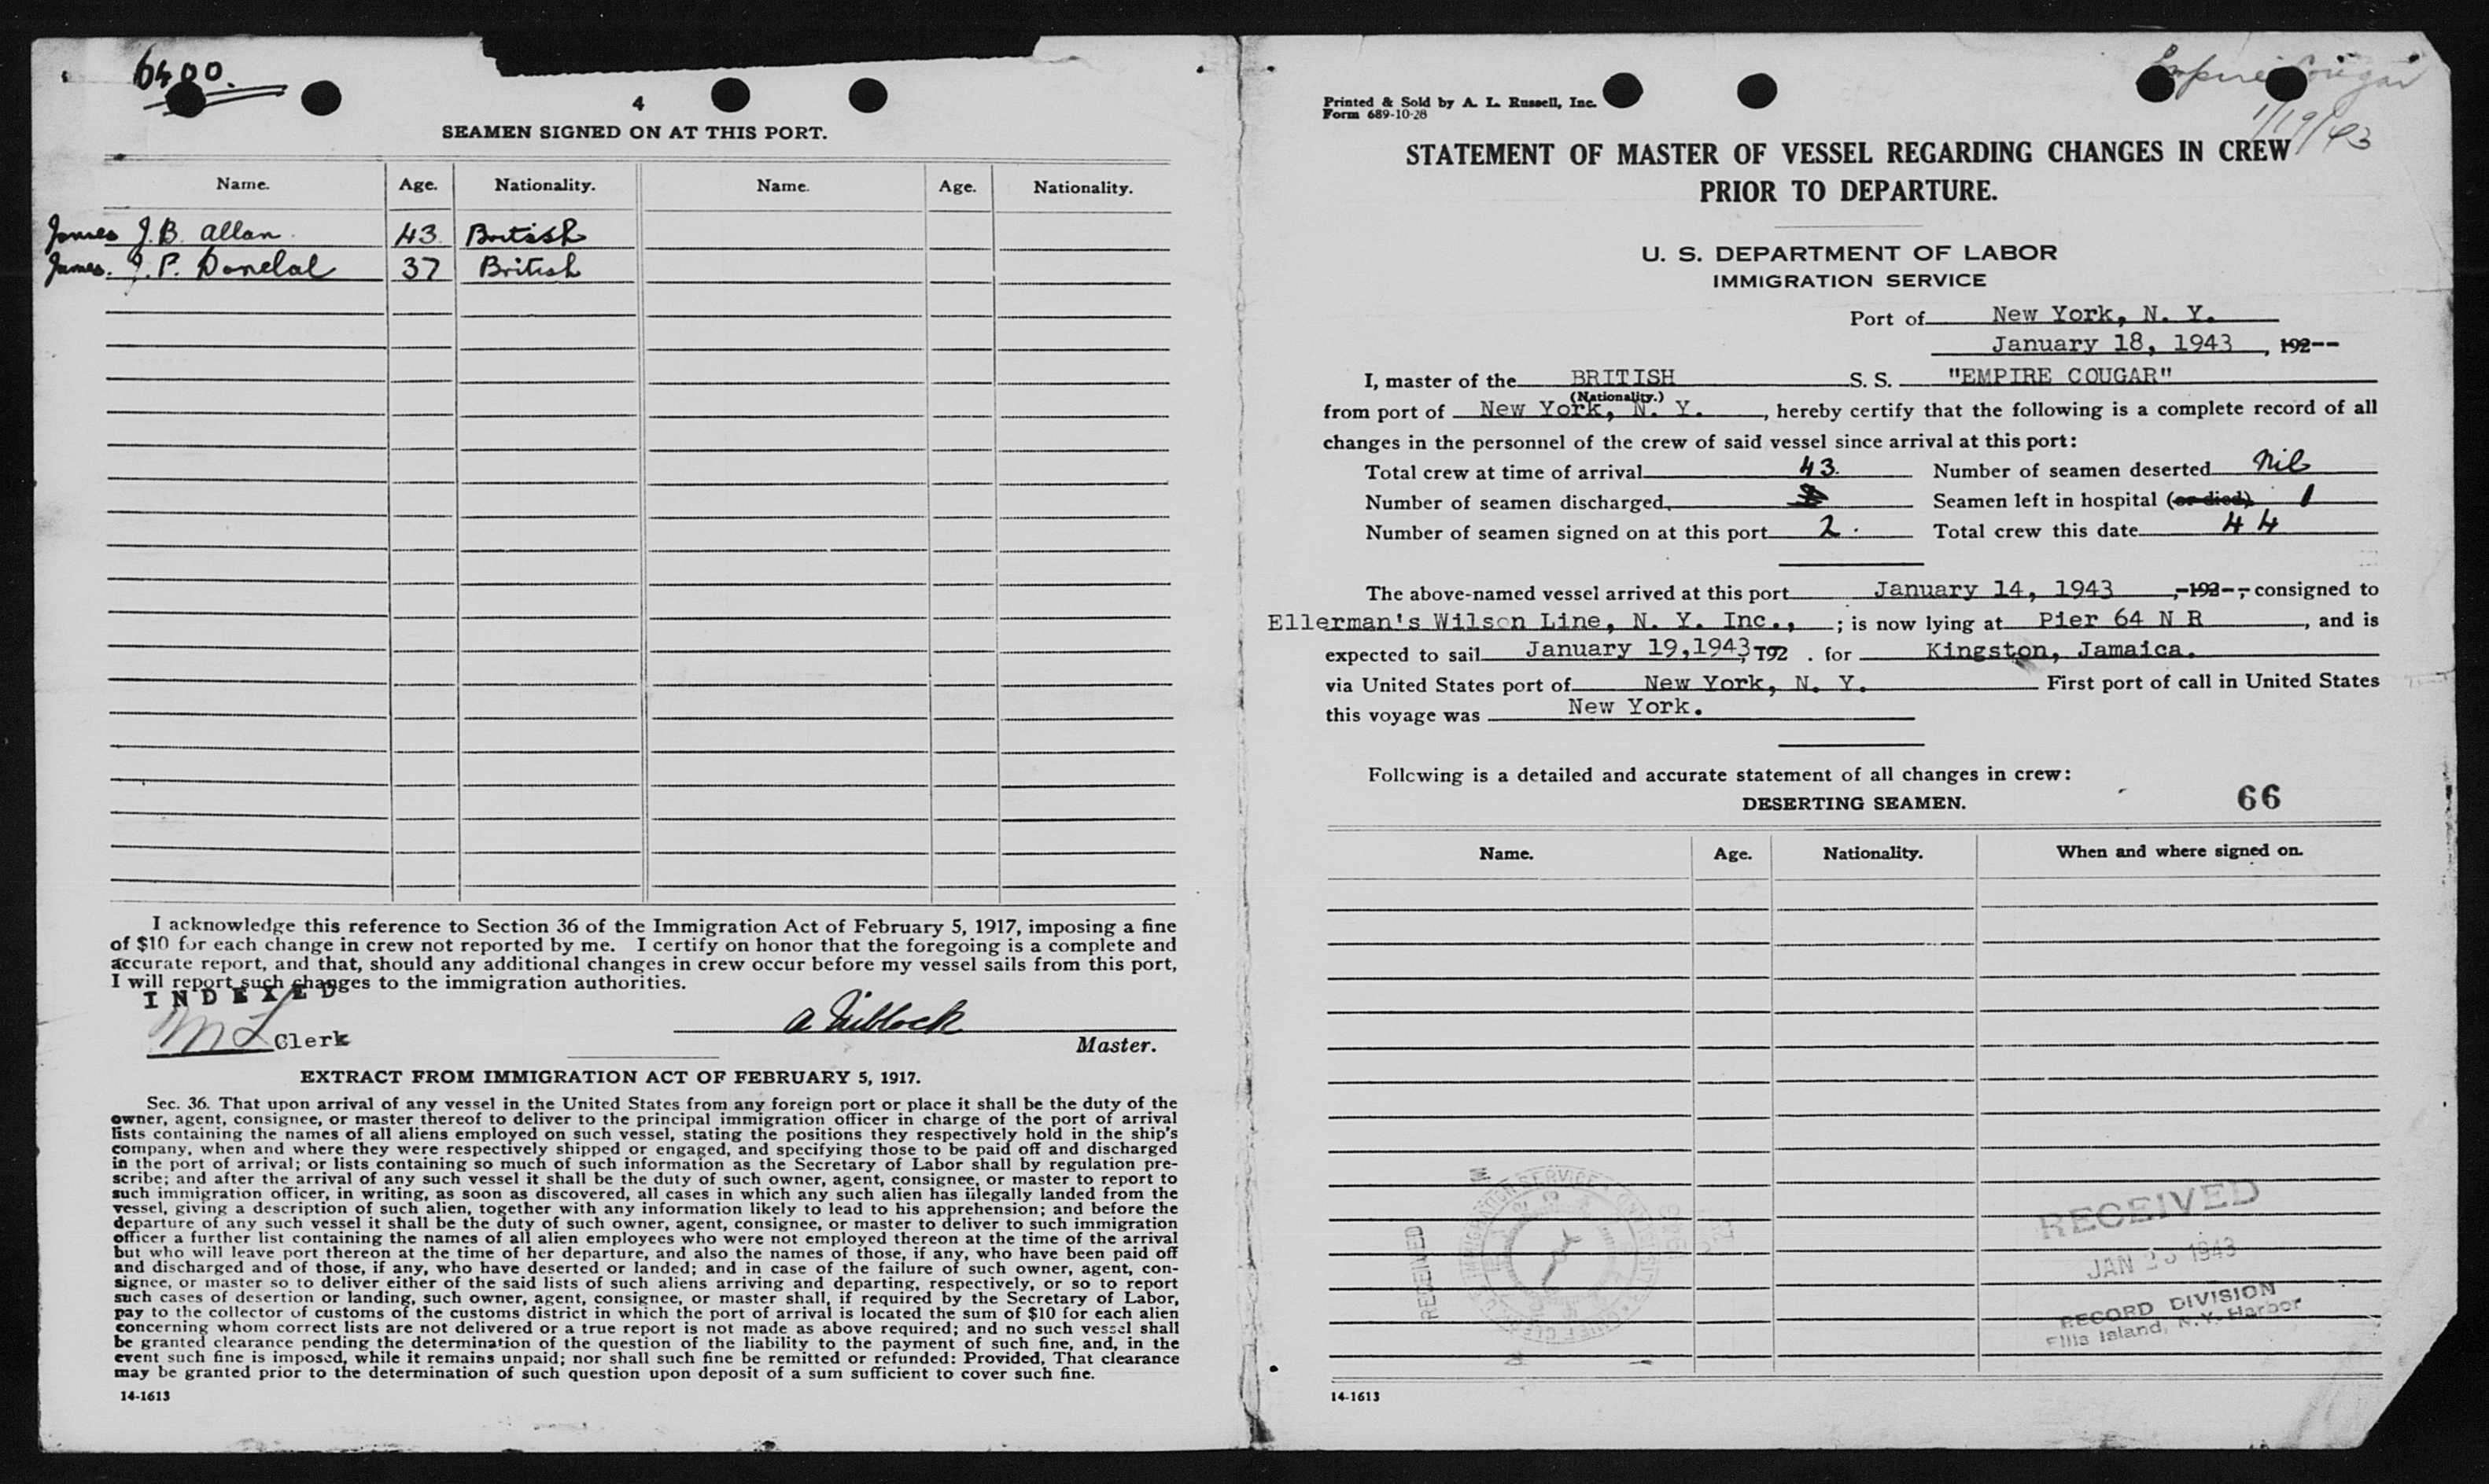 6400.
4
SEAMEN SIGNED ON AT THIS PORT.
Name. Age. Nationality. Name. Age. Nationality.
James J.B. Allan 43 British
James. J.P. 37 British
I acknowledge this reference to Section 36 of the Immigration Act of February 5, 1917, imposing a fine
of $10 for each change in crew not reported by me. I certify on honor that the foregoing is a complete and
accurate report, and that, should any additional changes in crew occur before my vessel sails from this port,
I will report such changes to the immigration authorities.
INDEXED
Clerk
A Niblock
Master.
EXTRACT FROM IMMIGRATION ACT OF FEBRUARY 5, 1917.
Sec. 36. That upon arrival of any vessel in the United States from any foreign port or place it shall be the duty of the
owner, agent, consignee, or master thereof to deliver to the principal immigration officer in charge of the port of arrival
lists containing the names of all aliens employed on such vessel, stating the positions they respectively hold in the ship's
company, when and where they were respectively shipped or engaged, and specifying those to be paid off and discharged
in the port of arrival; or lists containing so much of such information as the Secretary of Labor shall by regulation pre-
scribe; and after the arrival of any such vessel it shall be the duty of such owner, agent, consignee, or master to report to
such immigration officer, in writing, as soon as discovered, all cases in which any such alien has illegally landed from the
vessel, giving a description of such alien, together with any information likely to lead to his apprehension; and before the
departure of any such vessel it shall be the duty of such owner, agent, consignee, or master to deliver to such immigration
officer a further list containing the names of all alien employees who were not employed thereon at the time of the arrival
but who will leave port thereon at the time of her departure, and also the names of those, if any, who have been paid off
and discharged and of those, if any, who have deserted or landed; and in case of the failure of such owner, agent, con-
signee, or master so to deliver either of the said lists of such aliens arriving and departing, respectively, or so to report
such cases of desertion or landing, such owner, agent, consignee, or master shall, if required by the Secretary of Labor,
pay to the collector of customs of the customs district in which the port of arrival is located the sum of $10 for each alien
concerning whom correct lists are not delivered or a true report is not made as above required; and no such vessel shall
be granted clearance pending the determination of the question of the liability to the payment of such fine, and, in the
event such fine is imposed, while it remains unpaid; nor shall such fine be remitted or refunded: Provided, That clearance
may be granted prior to the determination of such question upon deposit of a sum sufficient to cover such fine.
14-1613
Empire Cougar
1/19/43
Printed & Sold by A. L. Russell, Inc.
Form 689-10-28
STATEMENT OF MASTER OF VESSEL REGARDING CHANGES IN CREW
PRIOR TO DEPARTURE.
U. S. DEPARTMENT OF LABOR
IMMIGRATION SERVICE
Port of New York, N. Y.
January 18, 1943, 192--
I, master of the BRITISH S. S. "EMPIRE COUGAR"
(Nationality.)
from port of New York, N. Y., hereby certify that the following is a complete record of all
changes in the personnel of the crew of said vessel since arrival at this port:
Total crew at time of arrival 43. Number of seamen deserted Nil
Number of seamen discharged Seamen left in hospital (or died) 1
Number of seamen signed on at this port 2. Total crew this date 44
The above-named vessel arrived at this port January 14, 1943, 192--, consigned to
Ellerman's Wilson Line, N. Y. Inc., ; is now lying at Pier 64 N R, and is
expected to sail January 19,1943, 192 . for Kingston, Jamaica.
via United States port of New York, N. Y. First port of call in United States
this voyage was New York.
Following is a detailed and accurate statement of all changes in crew:
DESERTING SEAMEN.
66
Name. Age. Nationality. When and where signed on.
RECEIVED
IMMIGRATION SERVICE
CHIEF CLERK
RECEIVED
JAN 1943
RECORD DIVISION
Ellis Island, N.Y. Harbor
14-1613